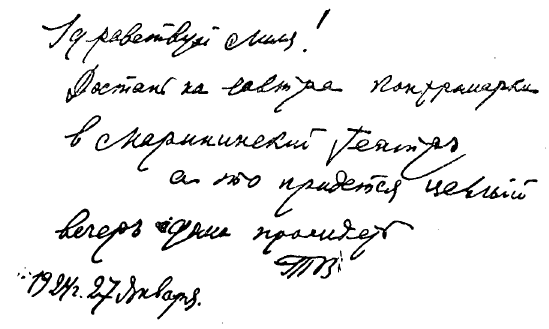 Здравствуй Миша!
Достань на завтра контрамарки
в Мариинский Театръ
а то придется целый
вечеръ дома просидеть
ТВ.
1924г. 27 Января.